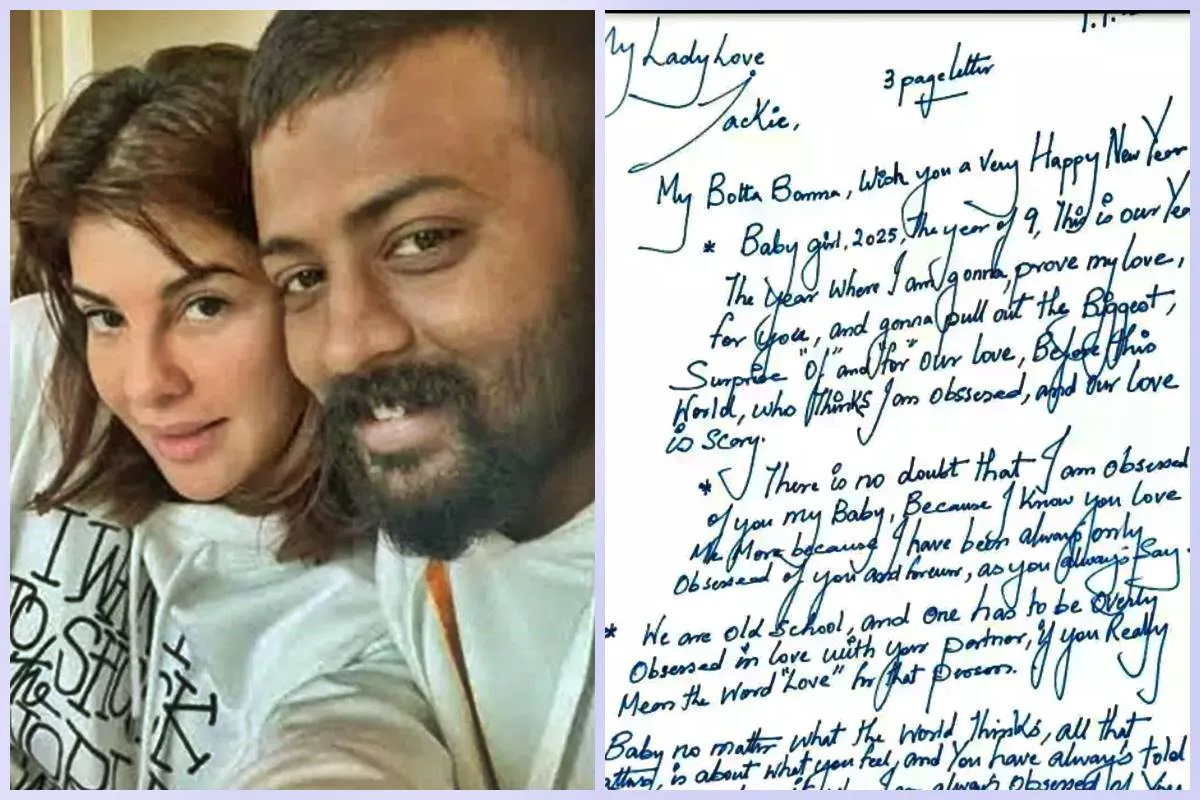 I WAN
TO SHO
me
My Lady Love
3 page letter
Jackie,
My Botta Bomma, Wish you a Very Happy New Year
* Baby girl, 2025, The year of 9, This is our Yea
The Year Where I am gonna, prove my love,
for you, and gonna pull out the Biggest,
Surprise "Of" and "for" our love, Before this
World, who thinks I am obssesed, and our love
is Scary.
* There is no doubt that I am obsessed
of you my Baby, Because I Know you love
Me More because I have been always only
Obsessed of you and forever, as you always Say.
* We are old School, and one has to be overly
Obsessed in love with your partner, if you Really
Mean the Word "Love" for that person.
Baby no matter what the world thinks, all that
is about what you feel, and You have always told
always obsessed of You